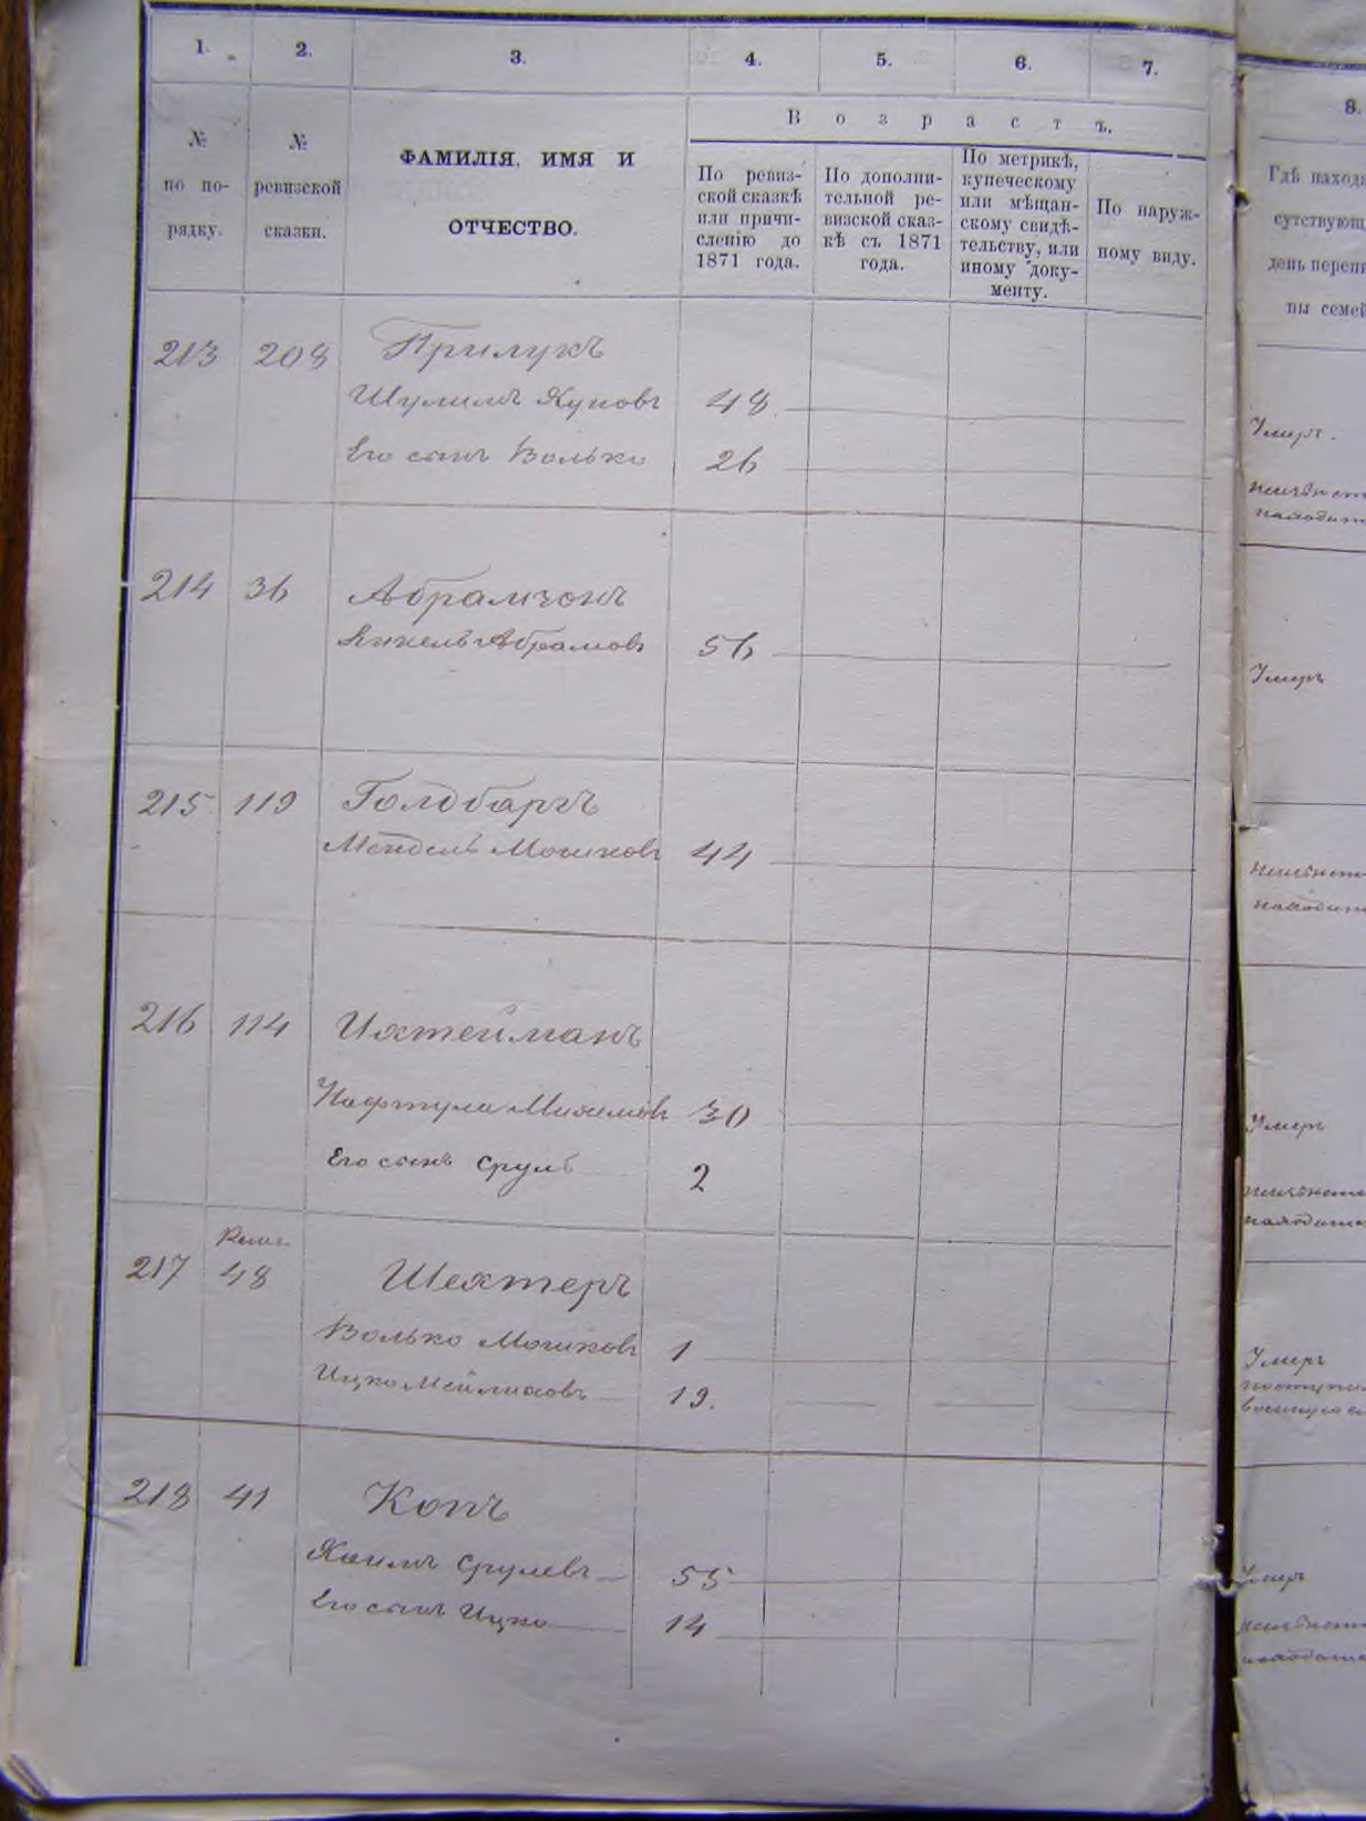 1. 2. 3. 4. 5. 6. 7.
№ по по-
рядку.
№
ревизской
сказки.
ФАМИЛІЯ, ИМЯ И
ОТЧЕСТВО.
Возрастъ.
По ревиз-
ской сказкѣ
или причи-
сленію до
1871 года.
По дополни-
тельной ре-
визской сказ-
кѣ съ 1871
года.
По метрикѣ,
купеческому
или мѣщан-
скому свидѣ-
тельству, или
иному доку-
менту.
По наруж-
ному виду.
213 208 Прилукъ
Шулимъ Янковъ 48
Его сынъ Волько 26
214 36 Абрамзонъ
Янкель Абрамовъ 56
215 119 Голдбаргъ
Мендель Мошковъ 44
216 114 Ихтейманъ
Нафтула Михелевъ 30
Его сынъ Сруль 2
217 48 Шехтеръ
Волько Мошковъ 1
Ицко Меймисовъ 19.
218 41 Копъ
Хаимъ Срулевъ 55
Его сынъ Ицко 14
8.
Гдѣ наход
сутствующ
день переп
ны семей
Умеръ.
Умеръ
Умеръ
Умеръ
Умеръ